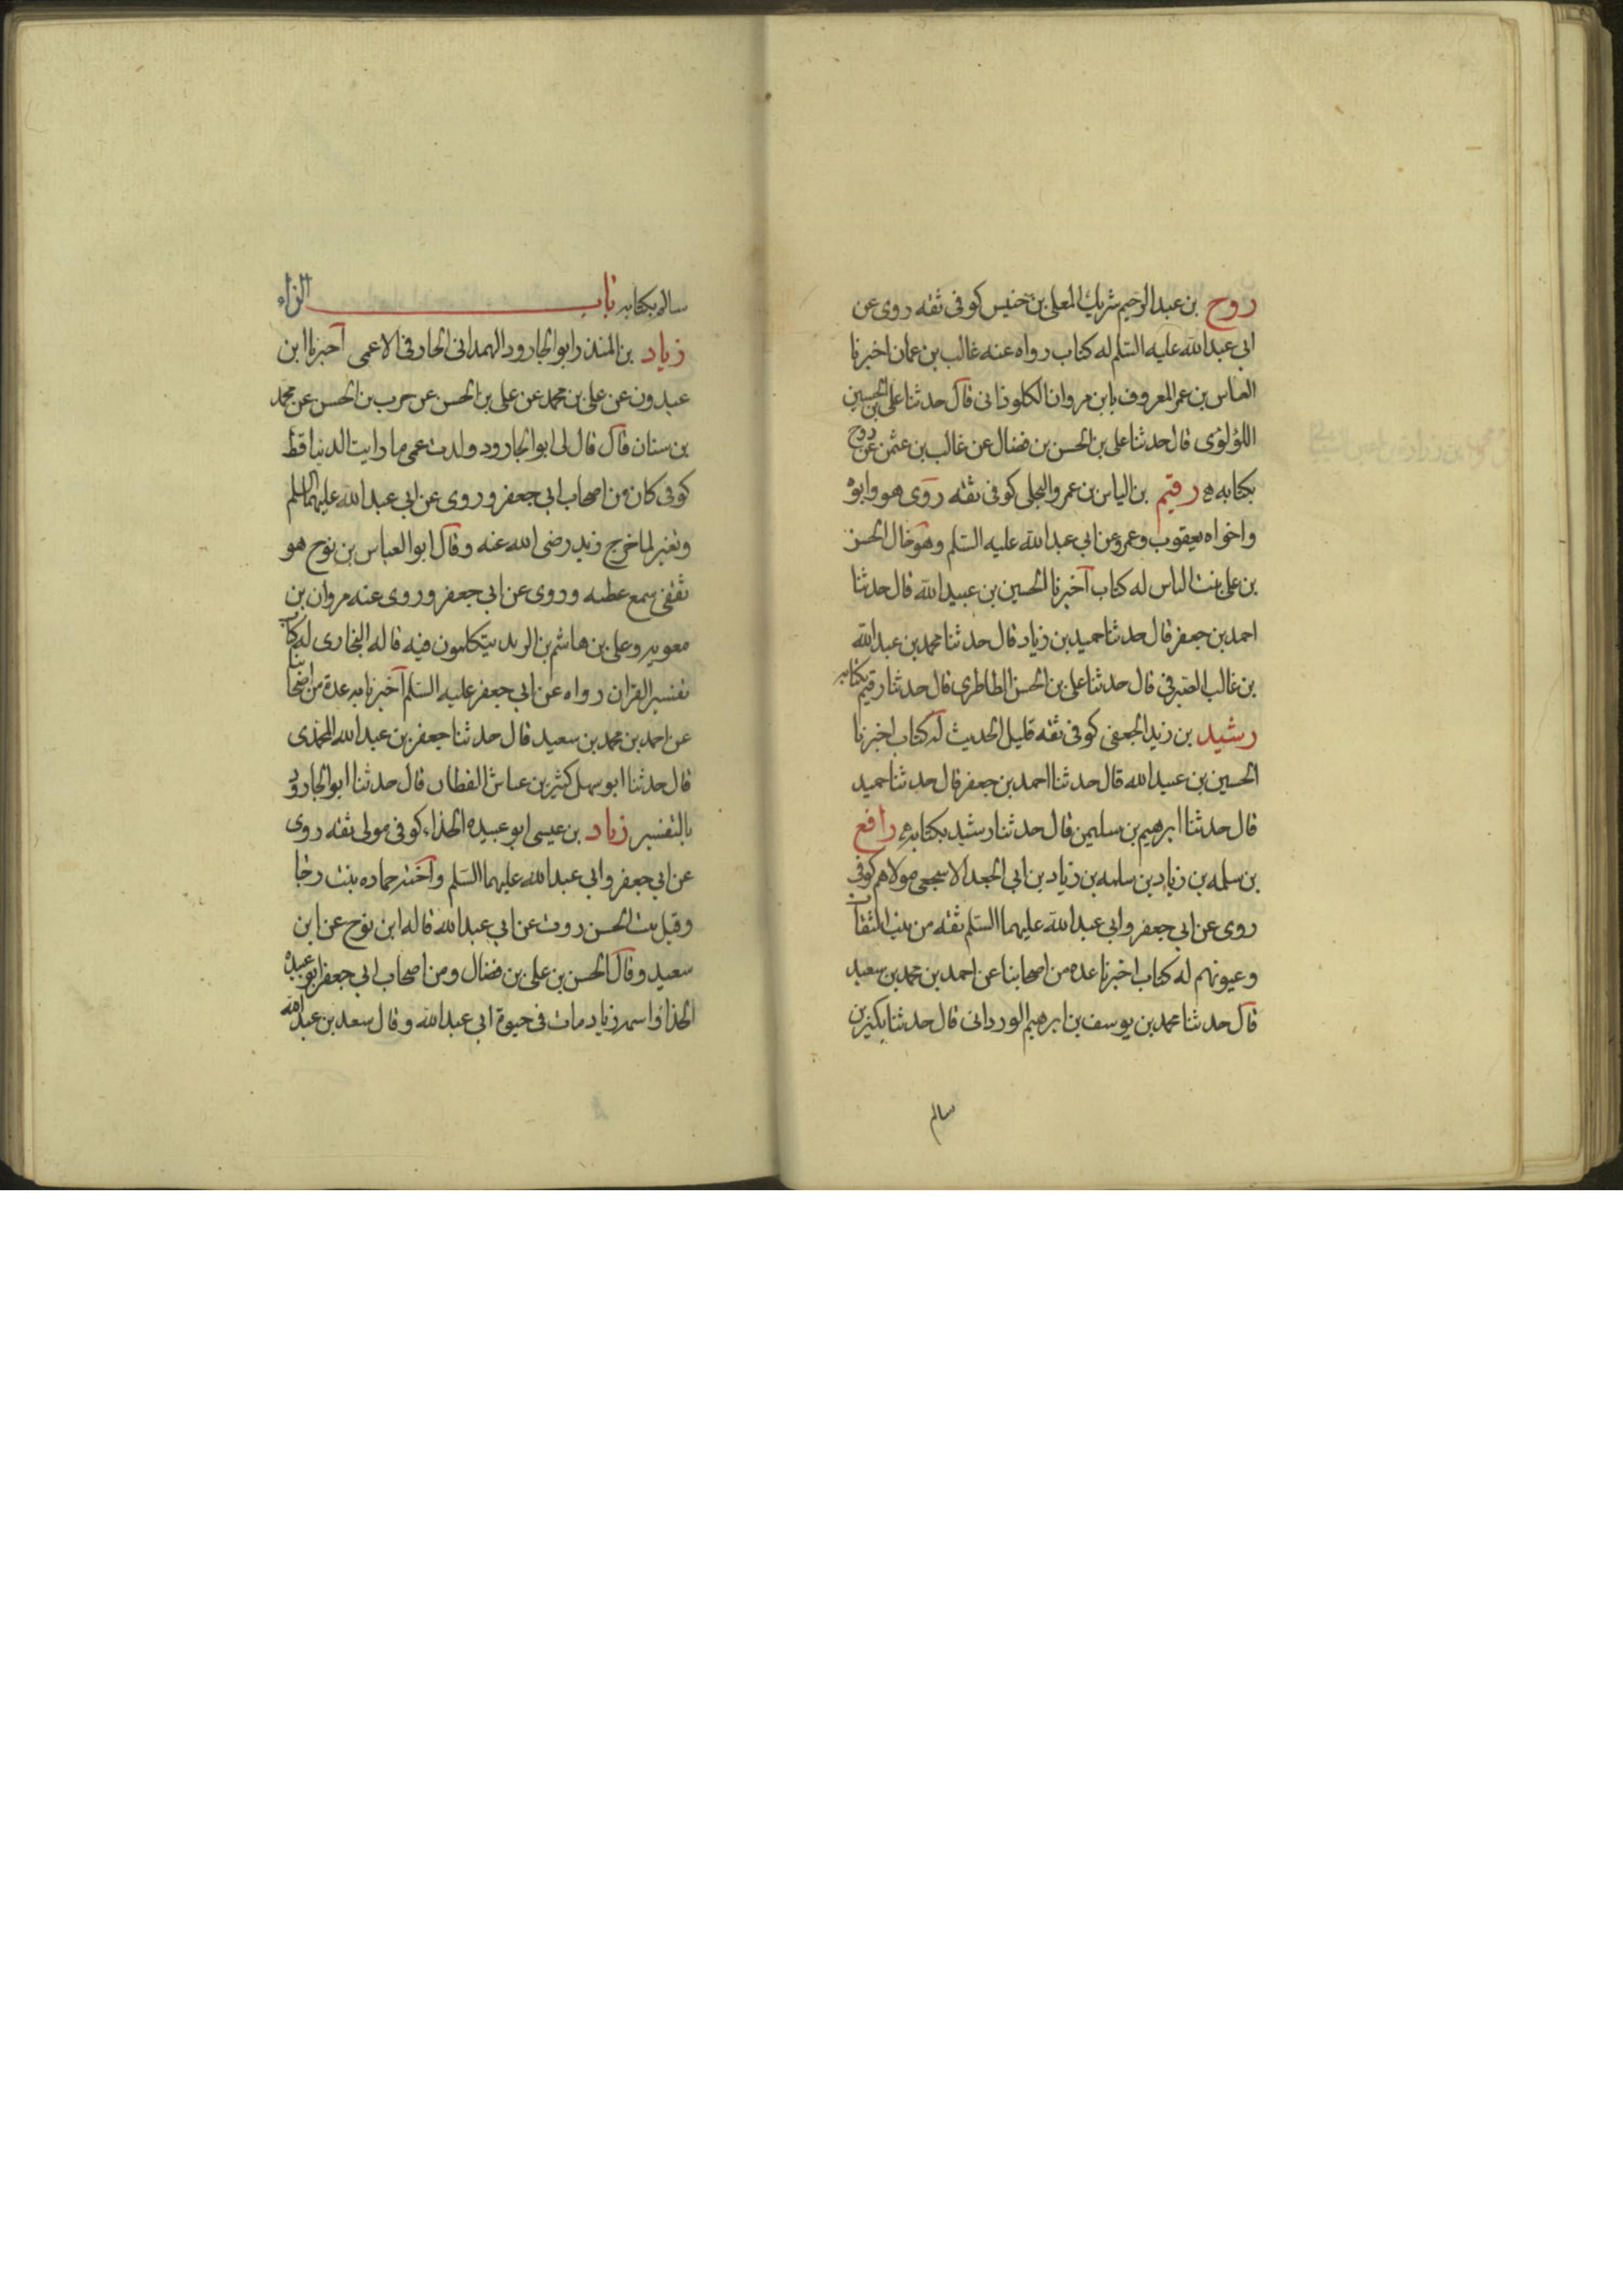 روح بن عبد الرحيم شريك المعلى بن خنيس كوفى ثقه روى عن
ابى عبد الله عليه السلم له كتاب رواه عنه غالب بن عثمان اخبرنا
العباس بن عمر المعروف بابن مروان الكلوذانى قال حدثنا على بن الحسين
اللؤلؤى قال حدثنا على بن الحسن بن فضال عن غالب بن عثمن عن روح
بكتابه رقيم بن الياس بن عمرو البجلى كوفى ثقه روى هو وابوه
واخواه يعقوب وعمرو عن ابى عبد الله عليه السلم وهو خال الحسن
بن على بنت الياس له كتاب اخبرنا الحسين بن عبيد الله قال حدثنا
احمد بن جعفر قال حدثنا حميد بن زياد قال حدثنا محمد بن عبد الله
بن غالب الصيرفى قال حدثنا على بن الحسن الطاطرى قال حدثنا رقيم بكتابه
رشيد بن زيد الجعفى كوفى ثقه قليل الحديث له كتاب اخبرنا
الحسين بن عبيد الله قال حدثنا احمد بن جعفر قال حدثنا حميد
قال حدثنا ابرهيم بن سليمن قال حدثنا رشيد بكتابه رافع
بن سلمه بن زياد بن سلمه بن زياد بن ابى الجعد الاشجعى مولاهم كوفى
روى عن ابى جعفر وابى عبد الله عليهما السلم ثقه من بيت الثقات
وعيونهم له كتاب اخبرنا عده من اصحابنا عن احمد بن محمد بن سعيد
قال حدثنا محمد بن يوسف بن ابرهيم الوردانى قال حدثنا بكير بن
سالم
سالم بكتابه باب الزاء
زياد بن المنذر ابو الجارود الهمدانى الخارفى الاعمى اخبرنا ابن
عبدون عن على بن محمد عن على بن الحسن عن حرب بن الحسن عن محمد
بن سنان قال قال لى ابو الجارود ولدت عمى ما رايت الدنيا قط
كوفى كان من اصحاب ابى جعفر وروى عن ابى عبد الله عليهما السلم
وتغير لما خرج زيد رضى الله عنه وقال ابو العباس بن نوح هو
ثقفى سمع عطيه وروى عن ابى جعفر وروى عنه مروان بن
معويه وعلى بن هاشم بن البريد يتكلمون فيه قاله البخارى له كتاب
تفسير القران رواه عن ابى جعفر عليه السلم اخبرنا به عدة من اصحابنا
عن احمد بن محمد بن سعيد قال حدثنا جعفر بن عبد الله المحمدى
قال حدثنا ابو سهل كثير بن عياش القطان قال حدثنا ابو الجارود
بالتفسير زياد بن عيسى ابو عبيده الحذاء كوفى مولى ثقه روى
عن ابى جعفر وابى عبد الله عليهما السلم واخته حماده بنت رجا
وقيل بنت الحسن روت عن ابى عبد الله قاله ابن نوح عن ابن
سعيد وقال الحسن بن على بن فضال ومن اصحاب ابى جعفر ابو عبيده
الحذاء واسمه زياد مات فى حيوة ابى عبد الله وقال سعد بن عبد الله